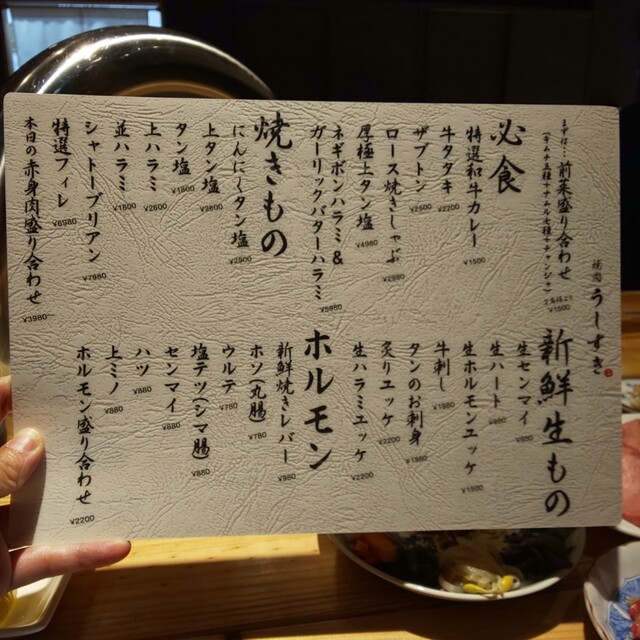 焼肉 うしすき
まずは… 前菜盛り合わせ
(キムチ五種+ナムル五種+チャンジャ) 2名様より
¥1500
必食
特選和牛カレー
¥1500
牛タタキ
¥2200
ザブトン
¥2500
ロース焼きしゃぶ
¥2980
厚極上タン塩
¥4980
ネギボンハラミ&
ガーリックバターハラミ
¥5980
焼きもの
にんにくタン塩
¥2500
上タン塩
¥2800
タン塩
¥1800
上ハラミ
¥2600
並ハラミ
¥1800
シャトーブリアン
¥7980
特選フィレ
¥6980
本日の赤身肉盛り合わせ
¥3980〜
新鮮生もの
生センマイ
生ハート
生ホルモンユッケ
牛刺し
¥1980
タンのお刺身
炙りユッケ
¥2200
生ハラミユッケ
¥2200
ホルモン
新鮮焼きレバー
¥980
ホソ(丸腸)
¥780
ウルテ
¥780
塩テツ(シマ腸)
¥880
センマイ
¥880
ハツ
¥880
上ミノ
¥880
ホルモン盛り合わせ
¥2200